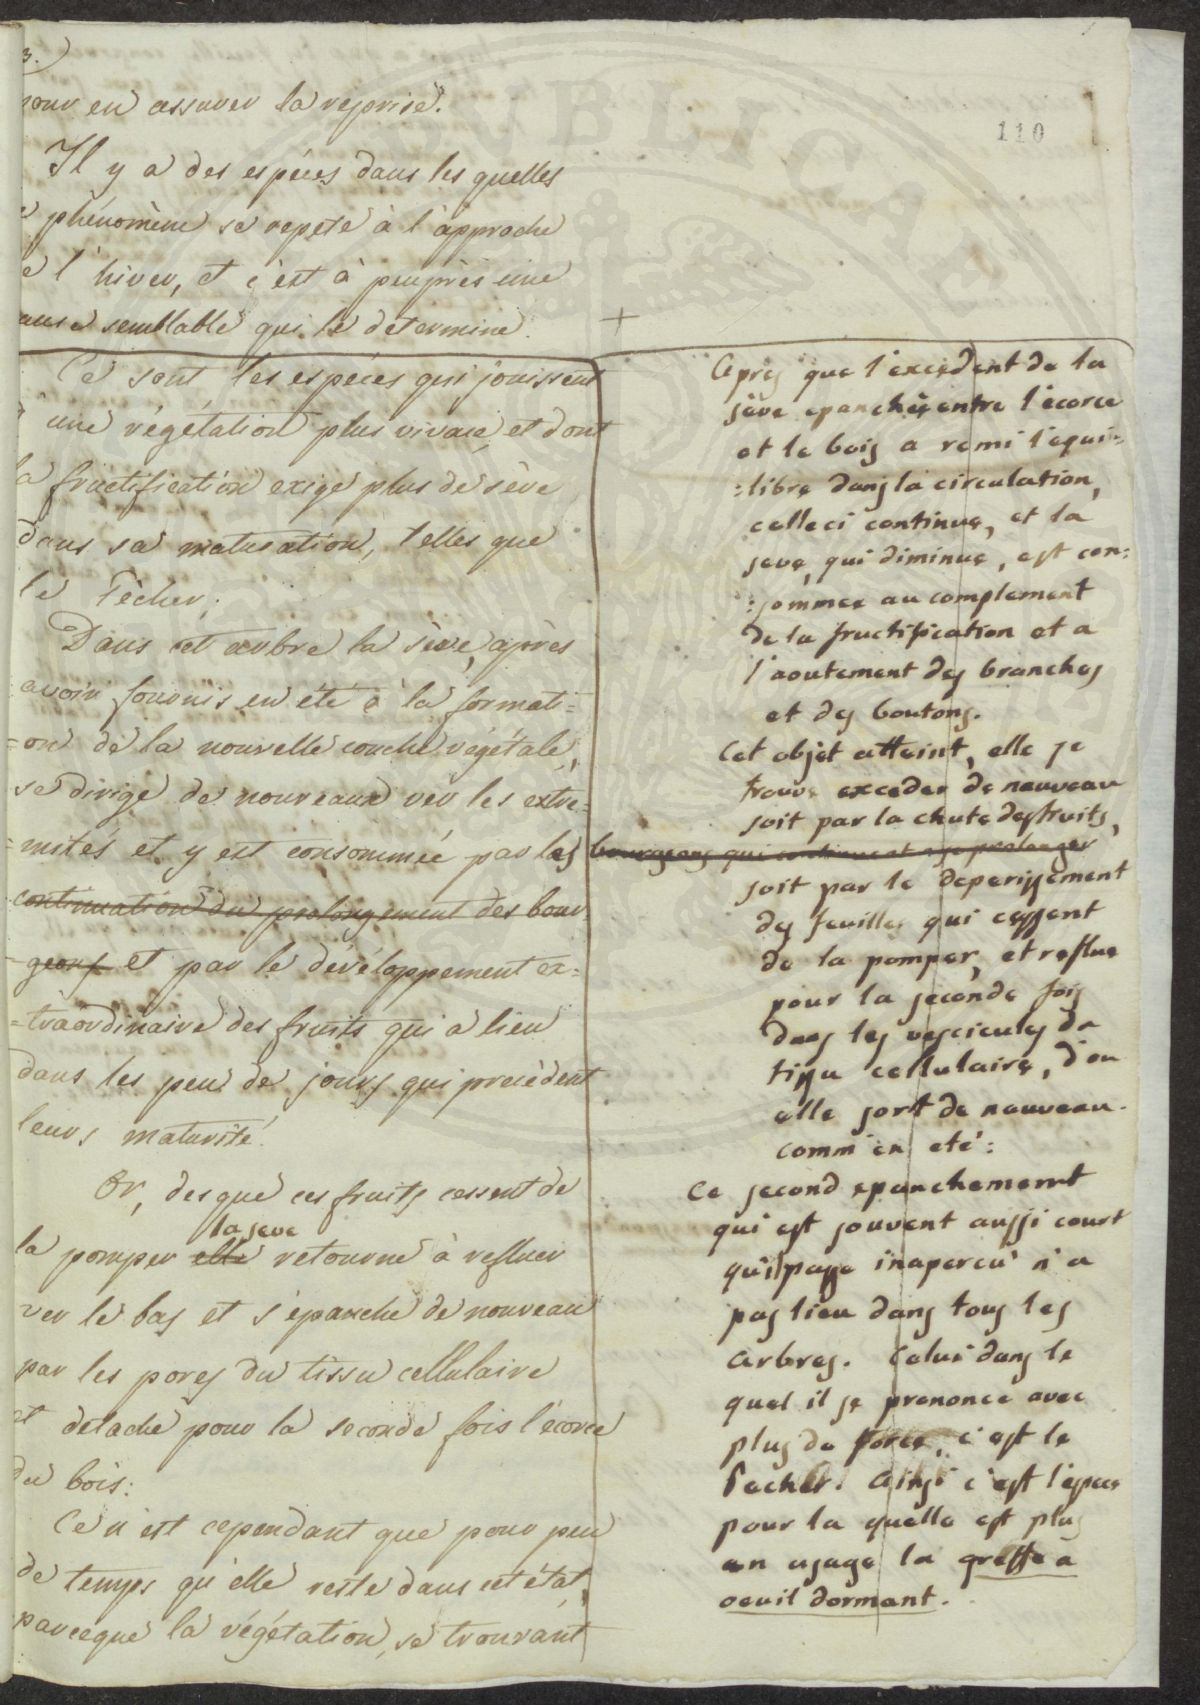 3.)
110
pour en assurer la reprise.
Il y a des espéces dans les quelles
phénomène se repete à l'approche
l'hiver, et c'est à peuprès une
semblable qui le determine.
+
Ce sont les espéces qui jouissent
une végétation plus vivace, et dont
la fructification exige plus de sève
dans sa maturation, telles que
le Pêcher;
Dans cet arbre la sève, après
avoir fournis en été à la formati=
=on de la nouvelle couche végétale,
se dirige de nouveaux ver les extre=
=mités et y est consommée par les bourgeons qui continuent a se prolonger
continuation du prolongement des bour
geons et par le développement ex=
=traordinaire des fruits qui a lieu
dans les peu de jours qui precèdent
leurs maturité.
Or, des que ces fruits cessent de
la seve
la pomper elle retourne à refluer
ver le bas et s'épanche de nouveau
par les pores du tissu cellulaire
et detache pour la seconde fois l'écorce
du bois:
Ce n'est cependant que pour peu
de temps qu'elle reste dans cet état,
parceque la végétation, se trouvant
Apres que l'excedent de la
séve epanchée entre l'écorce
et le bois a remi l'equi=
=libre dans la circulation,
celleci continue, et la
seve, qui diminue, est con=
=sommee au complement
de la fructification et a
l'aoutement des branches
et des boutons.
Cet objet atteint, elle se
trouve exceder de nouveau
soit par la chute des fruits,
soit par le deperissement
des feuilles qui cessent
de la pomper, et reflue
pour la seconde fois
dans les vescicules du
tissu cellulaire, d'ou
elle sort de nouveau
comm'en eté:
Ce second epanchement
qui est souvent aussi court
qu'il passe inapercu n'a
pas lieu dans tous les
arbres. Celui dans le
quel il se prononce avec
plus de force, c'est le
Pecher. Ainsi c'est l'espece
pour la quelle est plus
en usage la greffe a
oeuil dormant.